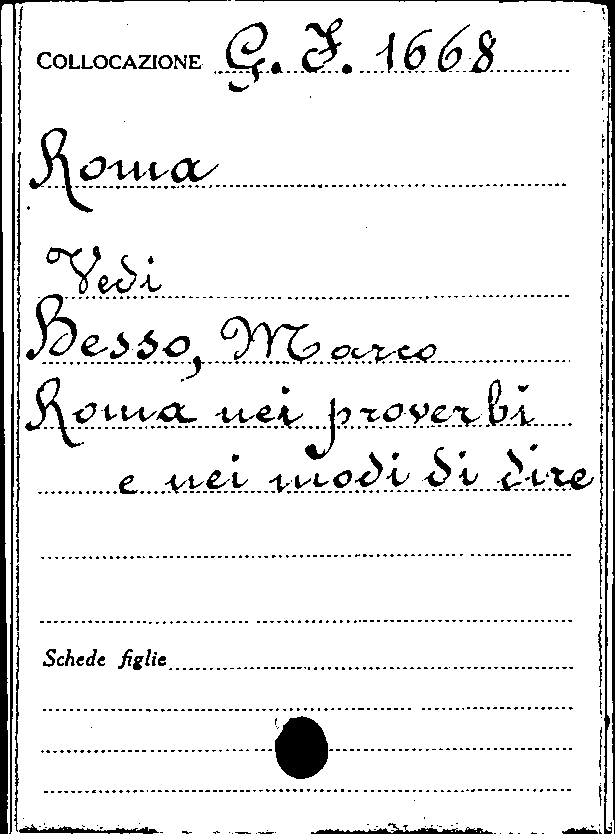 COLLOCAZIONE G. F. 1668
Roma
Vedi
Besso, Marco
Roma nei proverbi
e nei modi di dire
Schede figlie